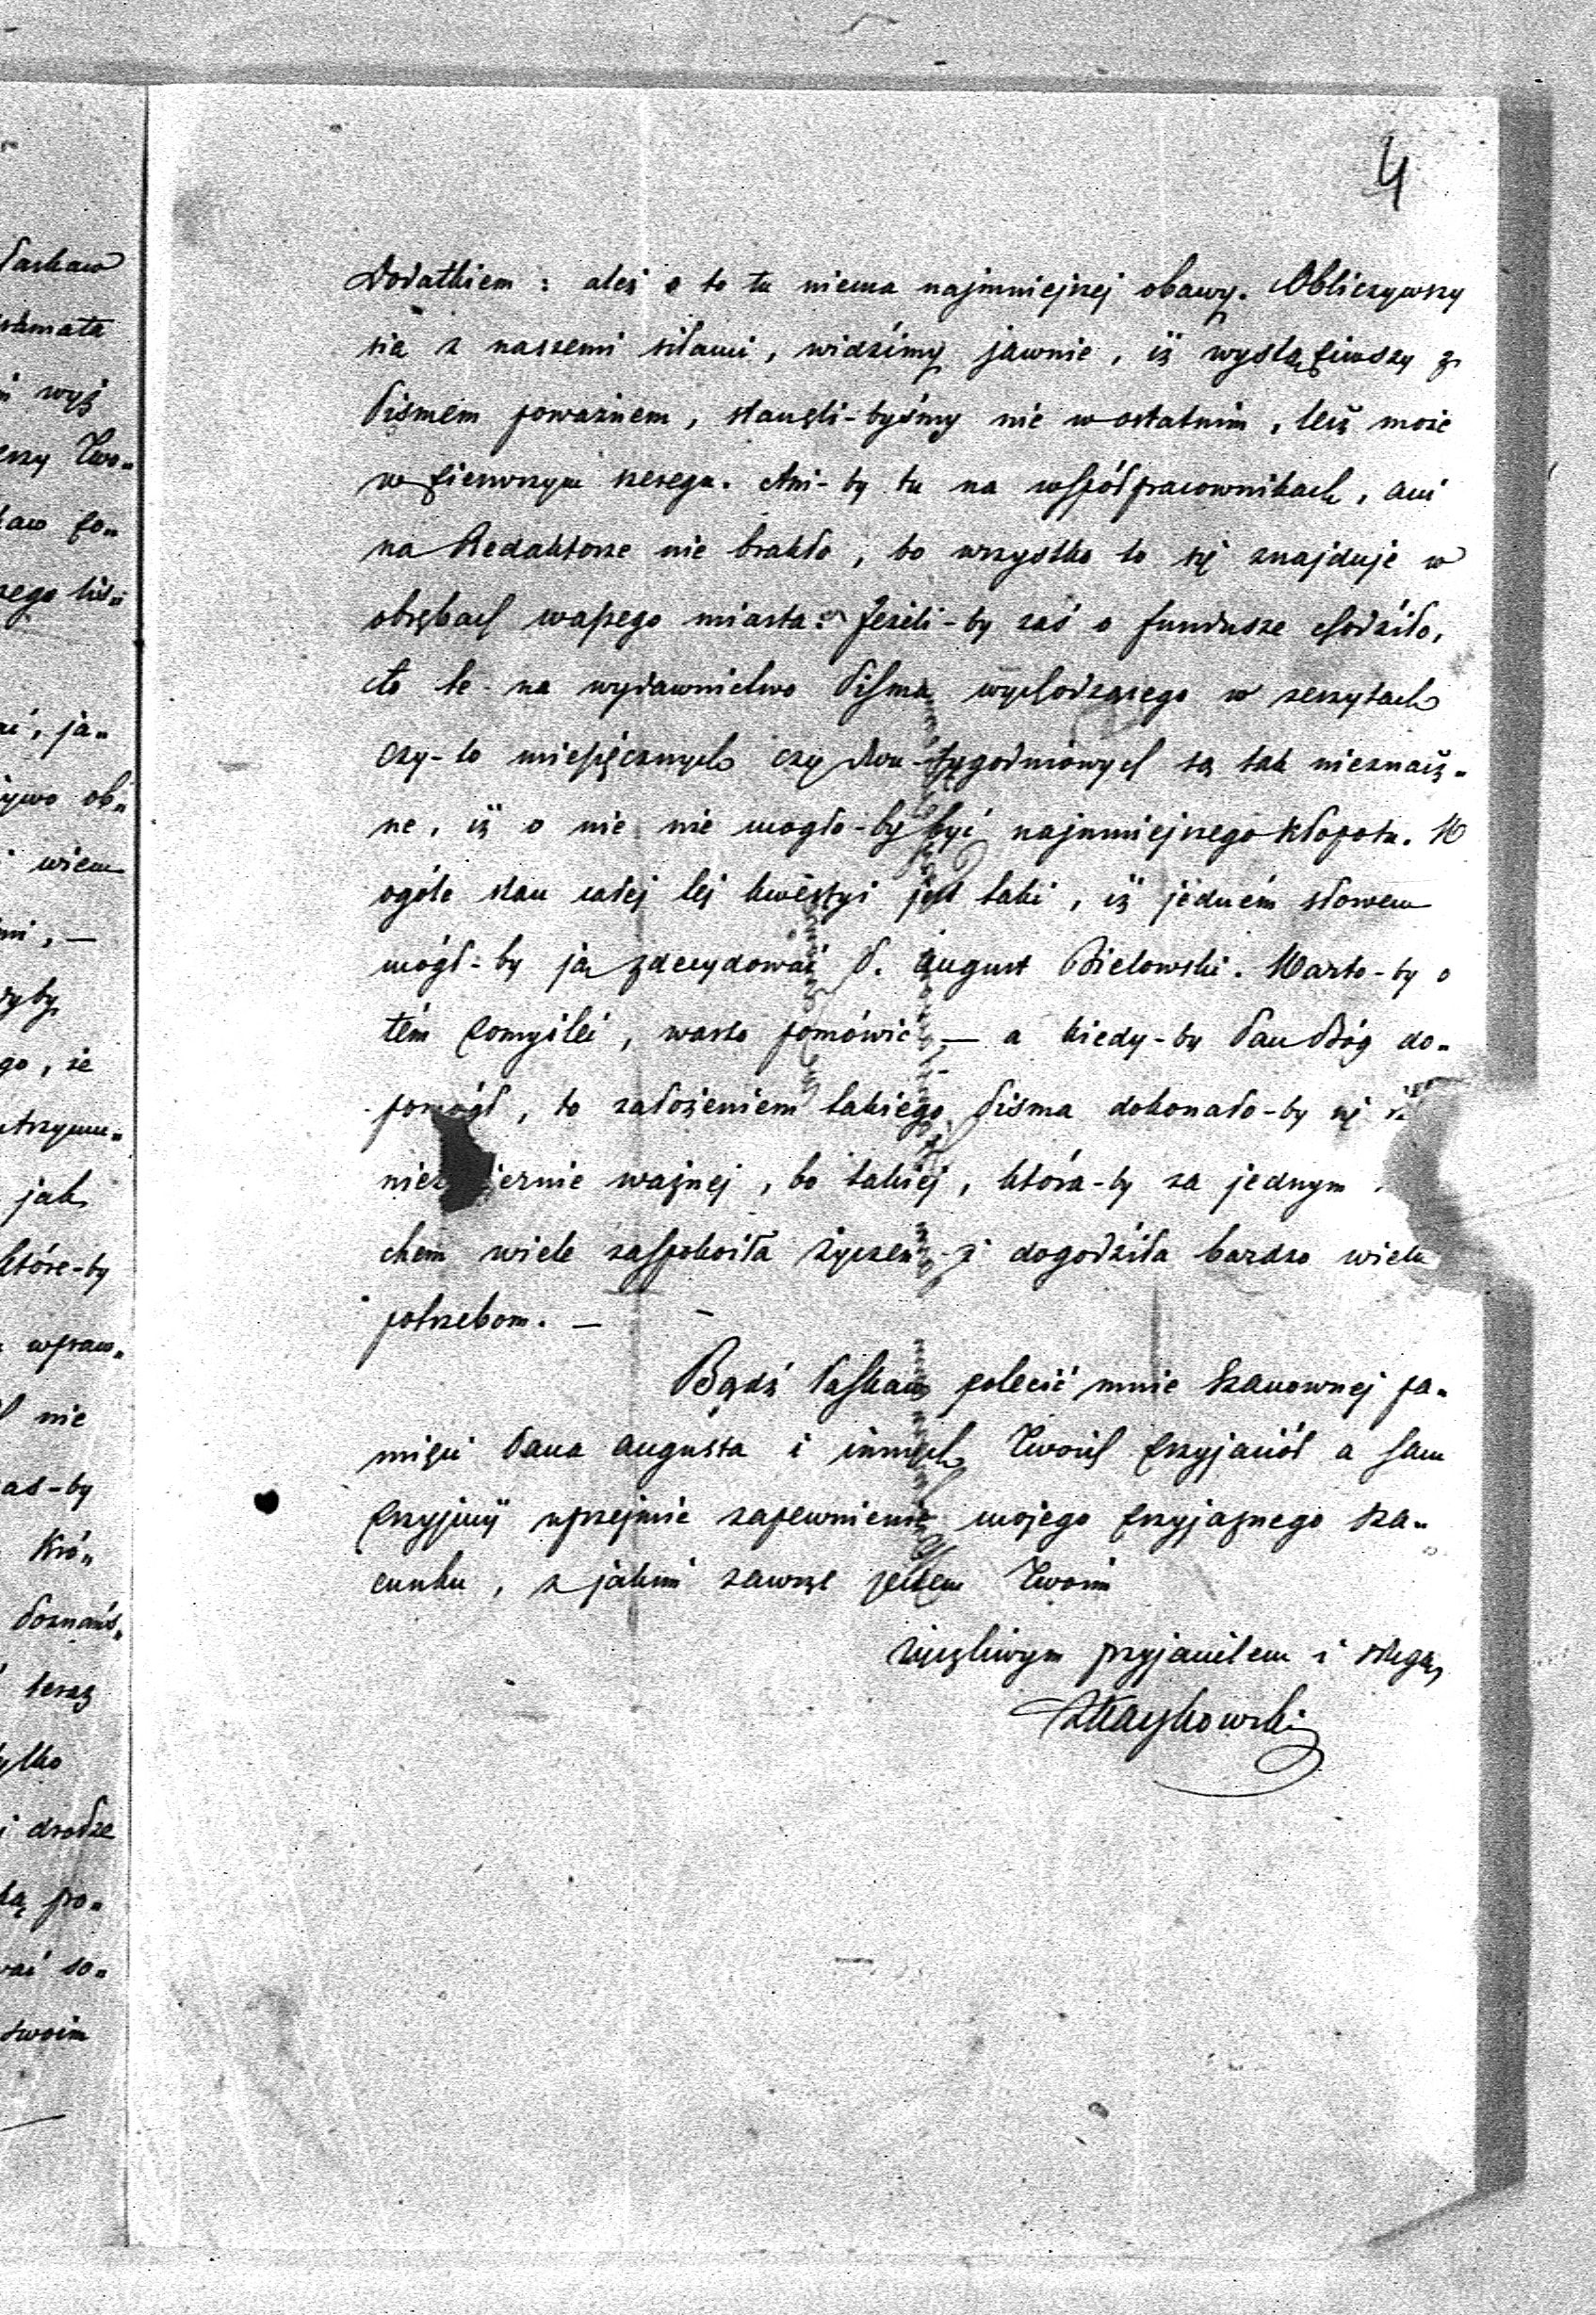 4
Dodatkiem: aleź o to tu niema najmniejszej obawy. Obliczywszy
się z naszemi siłami, widzimy jawnie, iż wystąpiwszy z
Pismem poważnem, stanęli-byśmy nie w ostatnim, lecz może
w pierwszym szeregu. Ani-by tu na współpracownikach, ani
na Redaktorze nie brakło, bo wszystko to się znajduje w
obrębach waszego miasta. Jeżeli-by zaś o fundusze chodziło,
to te na wydawnictwo Pisma wychodzącego w zeszytach
czy-to miesięcznych czy dwu-tygodniowych są tak nieznacz-
ne, iż o nie nie mogło-by być najmniejszego kłopotu. W
ogóle stan całej tej kwestyi jest taki, iż jedném słowem
mógł-by ją zdecydować P. August Bielowski. Warto-by o
tém pomyśleć, warto pomówić — a kiedy-by Pan Bóg do-
pomógł, to założeniem takiego Pisma dokonało-by się
niezmiernie ważnej, bo takiej, która-by za jednym
chem wiele zaspokoiła życzeń i dogodziła bardzo wielu
potrzebom. —
Bądź łaskaw polecić mnie Szanownej pa-
mięci Pana Augusta i innych Twoich przyjaciół a sam
przyjmij uprzejmie zapewnienie mojego przyjaznego sza-
cunku, z jakim zawsze jestem Twoim
życzliwym przyjacielem i sługą,
ZKaczkowski
łaskaw
wyż
Two-
po-
ja-
ob-
wiem
że
jak
które-by
nie
Kró-
teraz
tylko
drodze
po-
so-
swoim